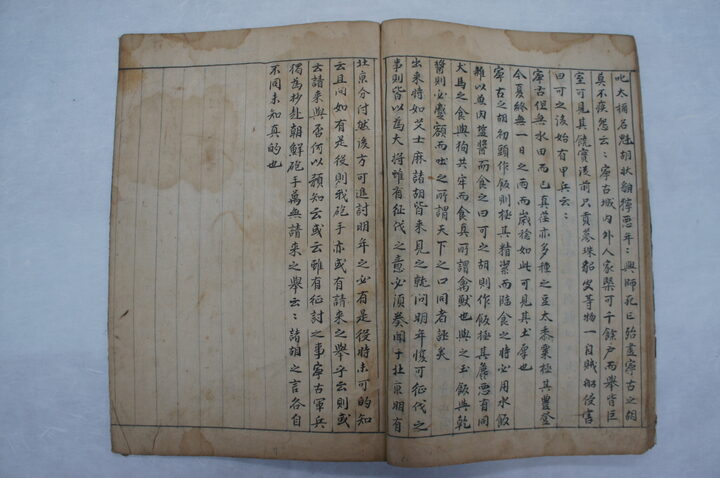 叱太桶名魁胡狀貌獰悪年〻興師死亡殆盡寧古之胡
莫不疾怨云〻寧古城內外人家槩可千餘戶而擧皆巨
室可見其饒實淺前只貢蔘珠貂皮等物一自賊船侵害
曰可之後始有甲兵云〻
寧古但無水田而已真荏亦多種之豆太黍粟極其豊登
今夏終無一日之雨而歲稔如此可見其土厚也
寧古之胡初頭作飯則極其精潔而臨食之時必用水飯
雜以魚肉鹽醬而食之曰可之胡則作飯極其麁悪有同
犬馬之食與狗共牢而食真所謂禽獸也與之玉飯與乾
醬則必蹙額而吐之所謂天下之口同者誣矣
出來時如艾士麻諸胡皆來見之乾問明年復可征伐之
事則皆以為大將雖有征伐之意必須奏聞于北京明有
北京分付然後方可進討明年之必有是役時未可的知
云且問如有是役則我砲手亦或有請來之擧乎云則或
云請來與否何以預知云或云雖有征討之事寧古軍兵
獨為抄赴朝鮮砲手萬無請來之擧云〻諸胡之言各自
不同未知真的也